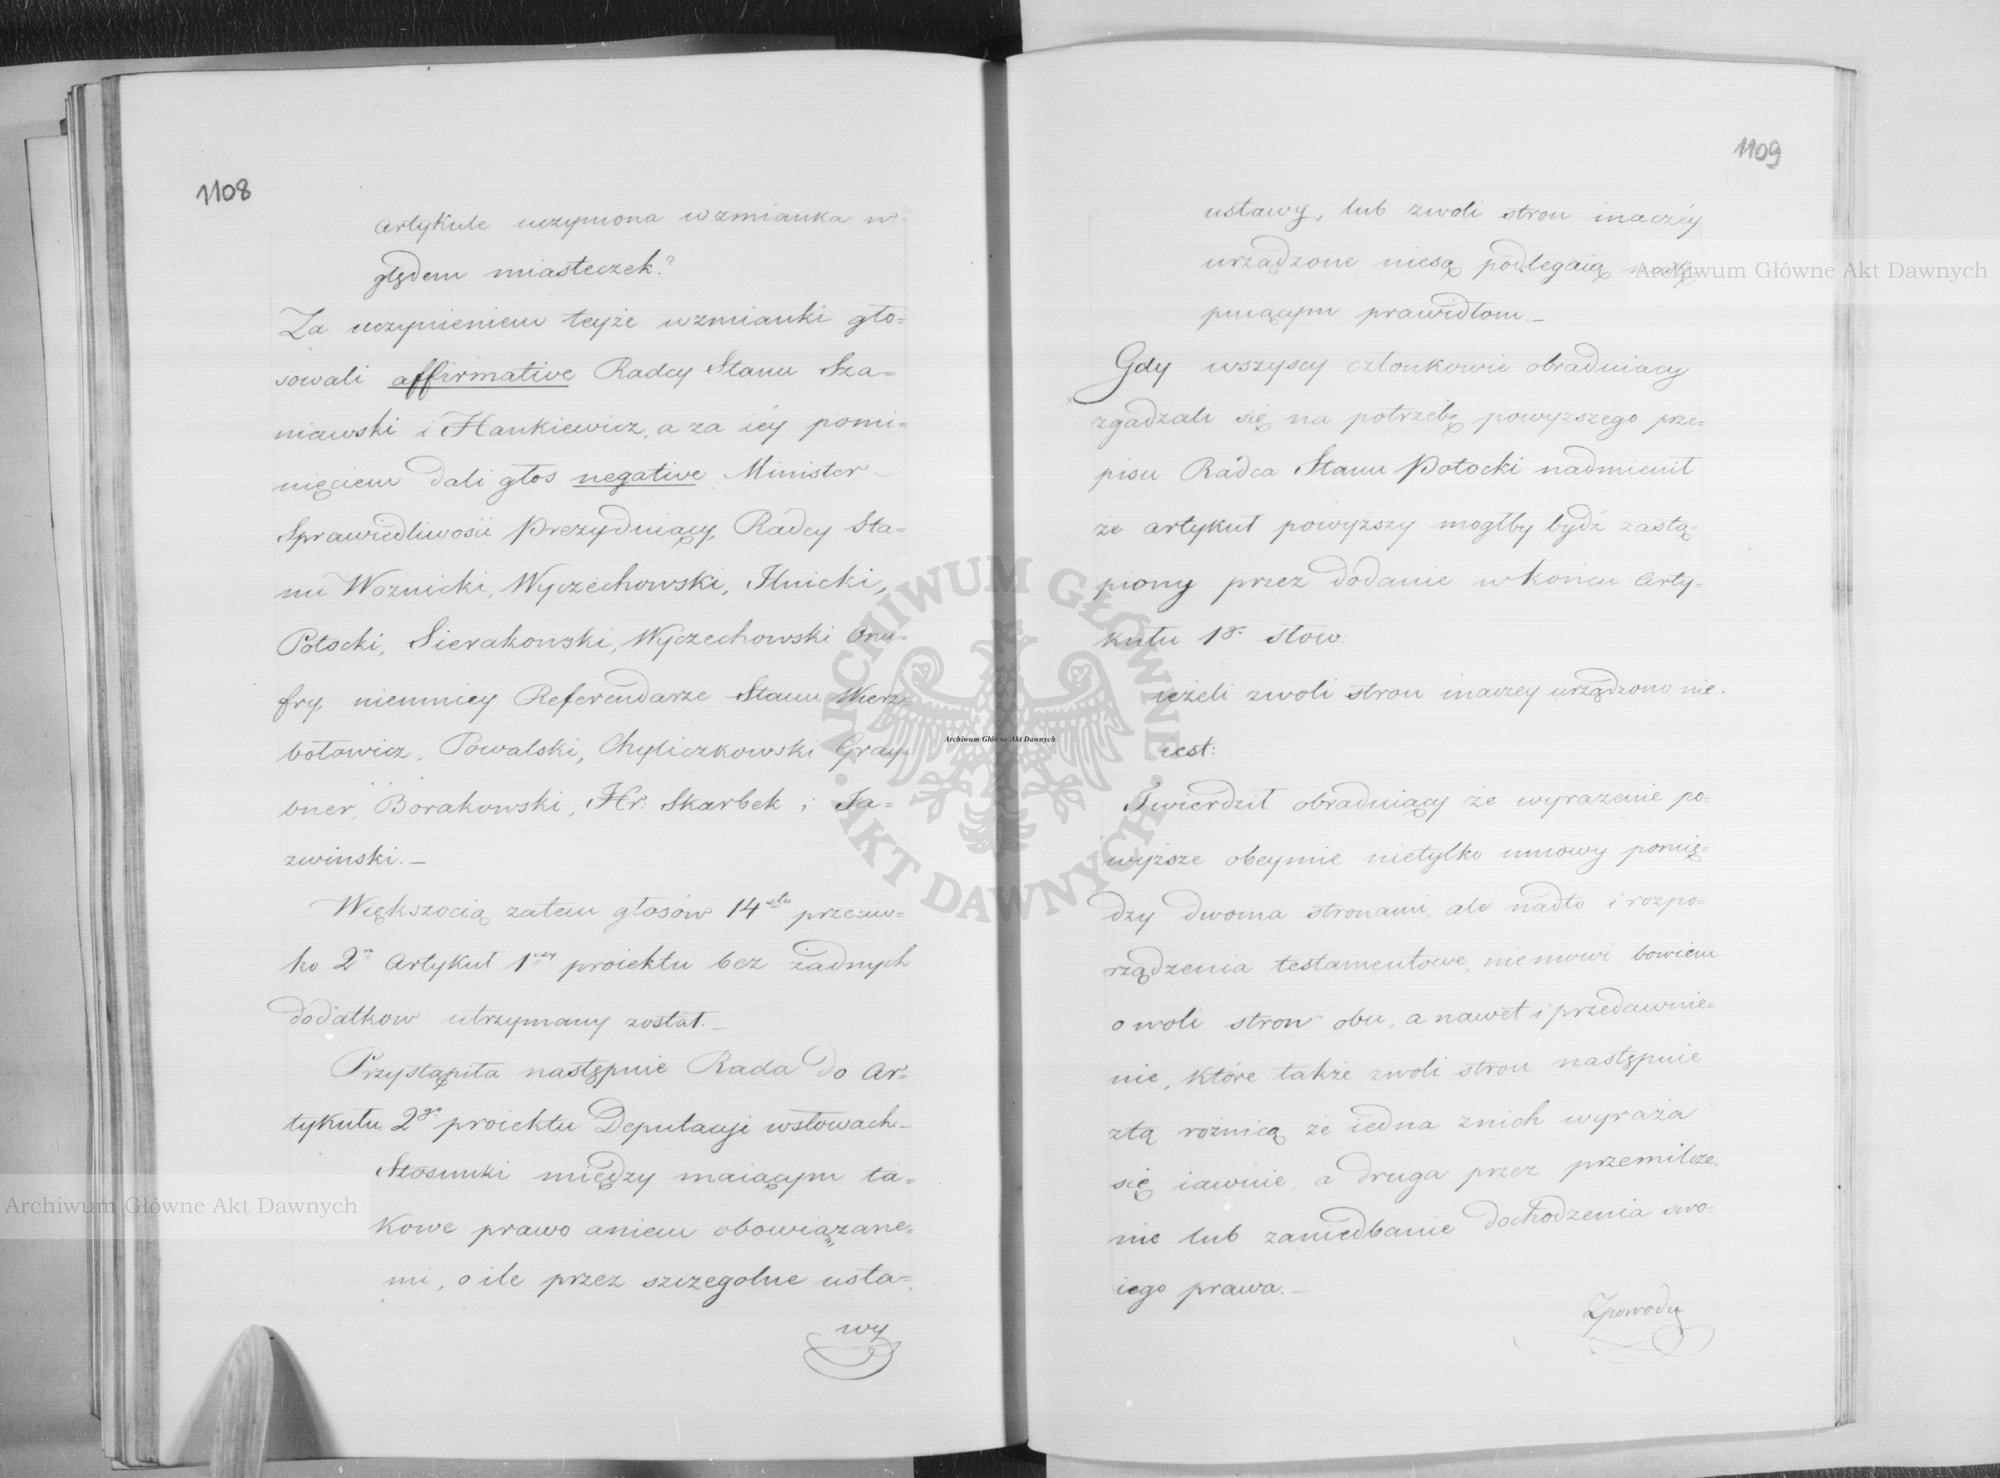 1108
artykule uczyniona wzmianka w
ględem miasteczek?
Za uczynieniem teyże wzmianki gło=
sowali affirmative Radcy Stanu Sza=
niawski i Hankiewicz, a za iéy pomi=
nięciem dali głos negative Minister
Sprawiedliwosci Prezyduiący, Radcy Sta=
nu Woźnicki, Wyczechowski, Ilnicki,
Potocki, Sierakowski, Wyczechowski Onu=
fry, niemniey Referendarze Stanu Wierz=
bołowicz, Powalski, Chyliczkowski Gray=
bner, Borakowski, Hr: Skarbek i Ja=
zwinski.—
Większocią zatem głosów 14stu przeciw=
ko 2m Artykuł 1wszy proiektu bez żadnych
dodatkow utrzymany został.—
Przystąpiła następnie Rada do Ar=
tykułu 2go proiektu Deputacyi wsłowach—
Stosunki między maiącym ta=
kowe prawo aniem obowiązane=
mi, o ile przez szczegolne usta=
wy
1109
ustawy, lub zwoli stron inaczéy
urządzone niesą podlegaią nastę
puiącym prawidłom—
Gdy wszyscy członkowie obraduiacy
zgadzali się na potrzebę powyższego prze=
pisu Radca Stanu Potocki nadmienił
że artykuł powyższy mogłby bydź zastą=
piony przez dodanie wkońcu Arty=
kułu 1go słow:
ieżeli zwoli stron inaczey urządzono nie.
iest:
Twierdził obraduiący że wyrażenie po=
wyższe obeymie nietylko umowy pomię=
dzy dwoma stronami, ale nadto i rozpo=
rządzenia testamentowe, niemowi bowiem
o woli stron obu, a nawet i przedawnie=
nie, które także zwoli stron następuie
ztą rożnicą że iedna znich wyraża
się iawnie, a druga przez przemilcze=
nie lub zaniedbanie dochodzenia swo=
iego prawa.—
Zpowodu
Archiwum Główne Akt Dawnych
Archiwum Główne Akt Dawnych
Archiwum Główne Akt Dawnych
ARCHIWUM GŁÓWNE · AKT DAWNYCH ·